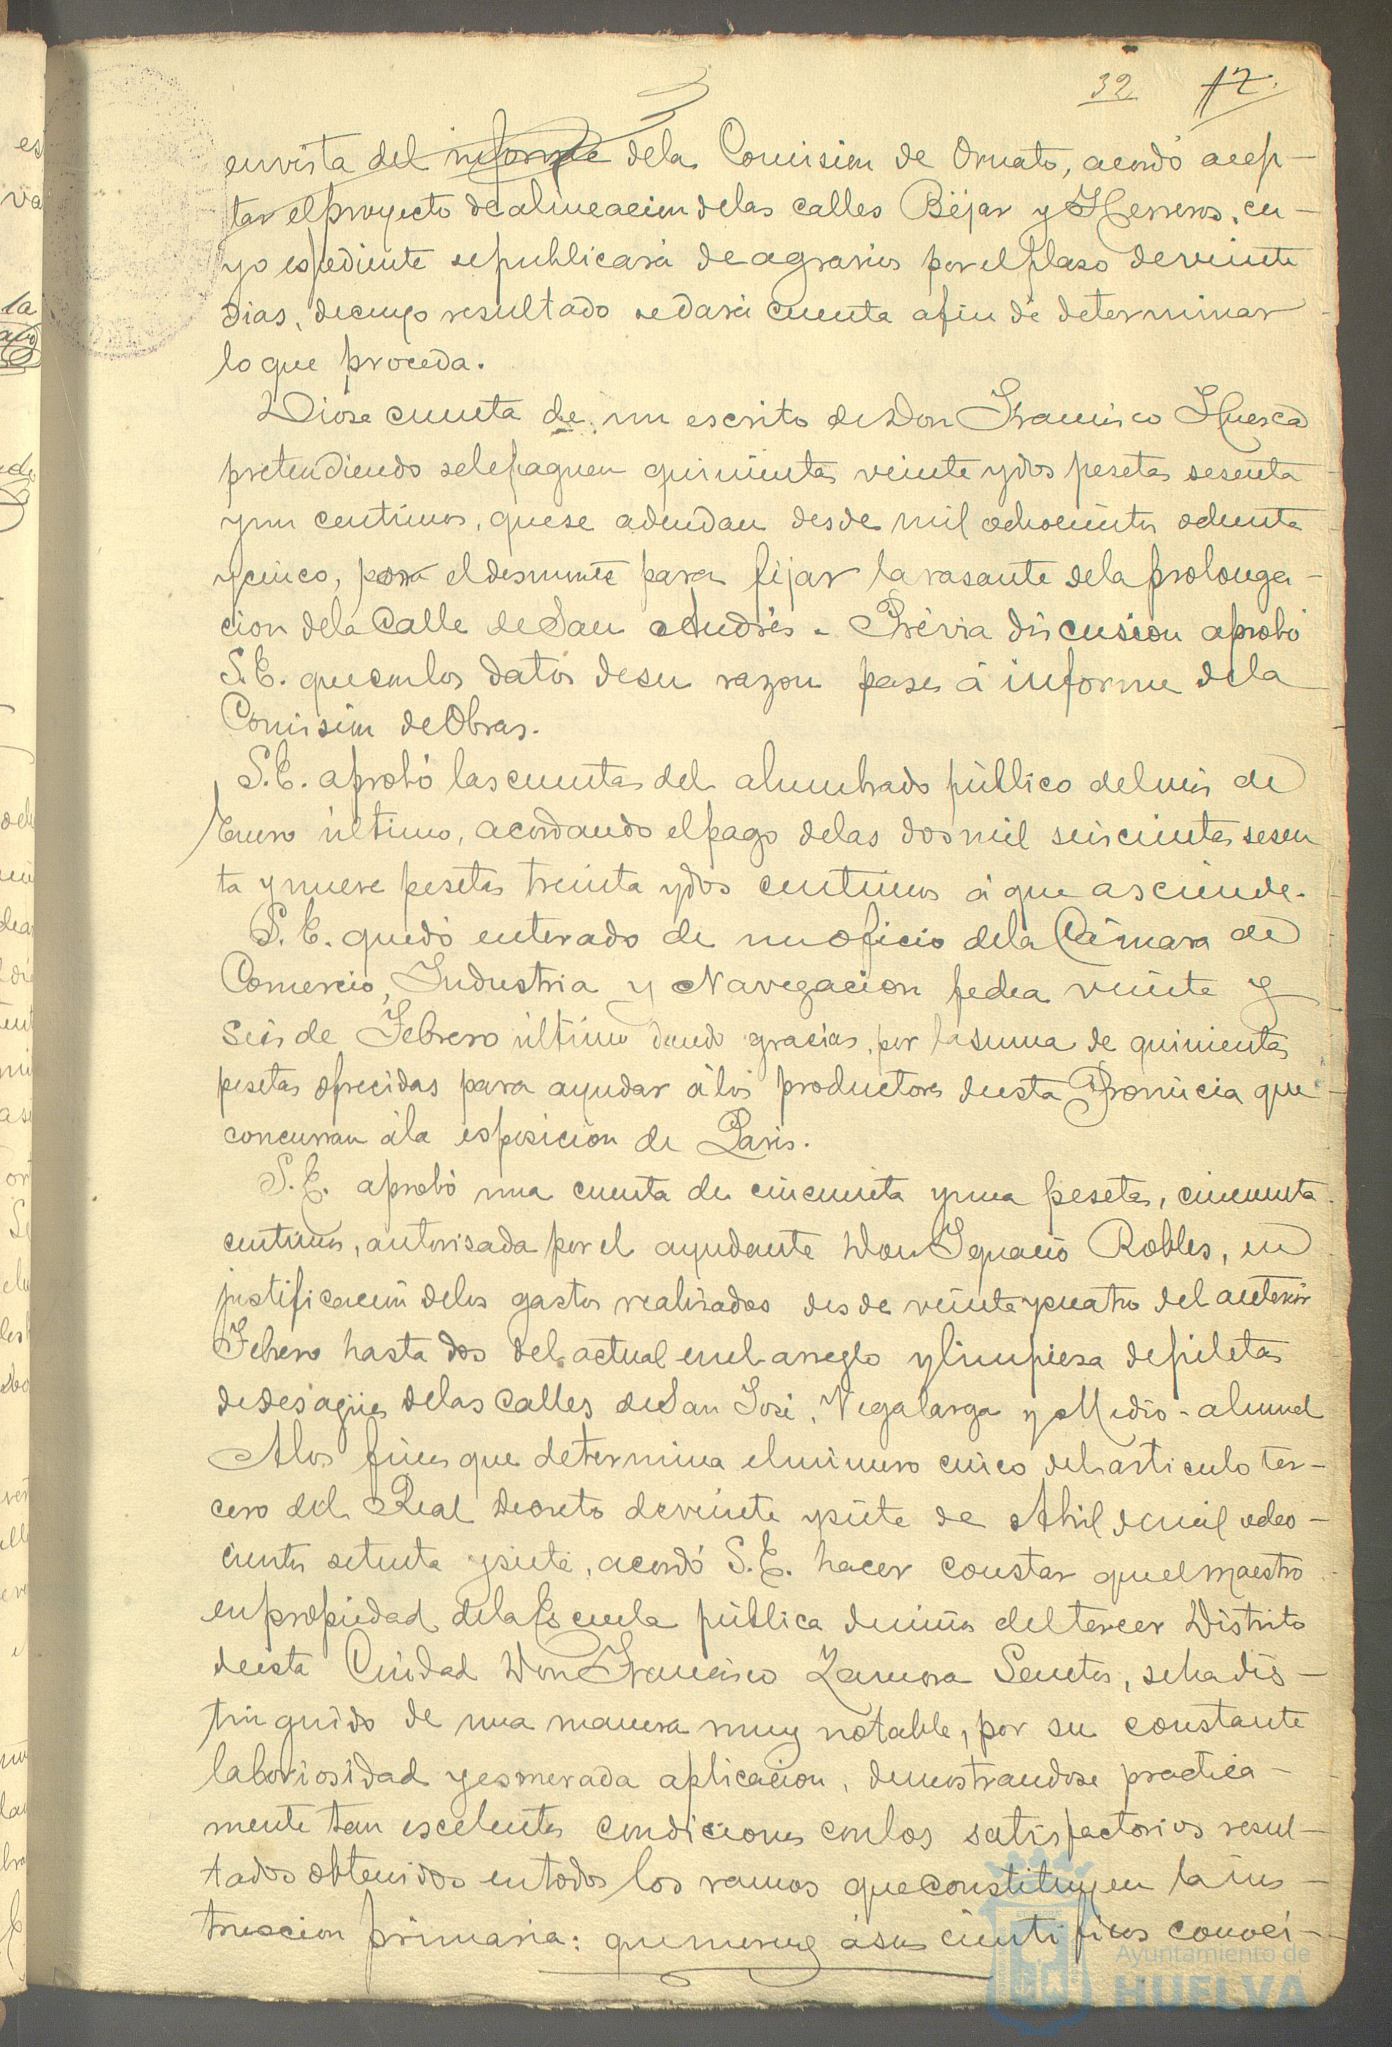 32 12.
en vista del informe de la Comision de Ornato, acordó acep-
tar el proyecto de alineacion de las calles Béjar y Herreros, cu-
yo espediente se publicará de agravios por el plazo de veinte
dias, de cuyo resultado se dará cuenta á fin de determinar
lo que proceda.
Dióse cuenta de un escrito de Don Francisco Huesca
pretendiendo se le paguen quinientas veinte y dos pesetas sesenta
y un centimos, que se adeudan desde mil ochocientos ochenta
y cinco, por el desmonte para fijar la rasante de la prolonga-
cion de la Calle de San Andrés. Prévia discusion aprobó
S.E. que con los datos de su razon pase á informe de la
Comision de Obras.
S.E. aprobó las cuentas del alumbrado público del mes de
Enero último, acordando el pago de las dos mil seiscientas sesen
ta y nueve pesetas treinta y dos centimos á que asciende.
S.E. quedó enterado de un oficio de la Cámara de
Comercio, Industria y Navegacion fecha veinte y
seis de Febrero último dando gracias por la suma de quinientas
pesetas ofrecidas para ayudar á los productores de esta Provincia que
concurran á la esposicion de Paris.
S.E. aprobó una cuenta de cincuenta y una pesetas, cincuenta
centimos, autorisada por el ayudante Don Ignacio Robles, en
justificacion de los gastos realisados desde veinte y cuatro del anterior
Febrero hasta dos del actual en el arreglo y limpiesa de piletas
de desagües de las calles de San José, Vegalarga y Medio-almud
A los fines que determina el número cinco del articulo ter-
cero del Real Decreto de veinte y siete de Abril de mil ocho-
cientos setenta y siete, acordó S.E. hacer constar que el maestro
en propiedad de la Escuela pública de niños del tercer Distrito
de esta Ciudad Don Francisco Zamora Santos, se ha dis-
tinguido de una manera muy notable, por su constante
laboriosidad y esmerada aplicacion, demostrandose practica-
mente tan escelentes condiciones con los satisfactorios resul-
tados obtenidos en todos los ramos que constituyen la ins-
truccion primaria: que merece á sus cientificos conoci-
Ayuntamiento de
HUELVA